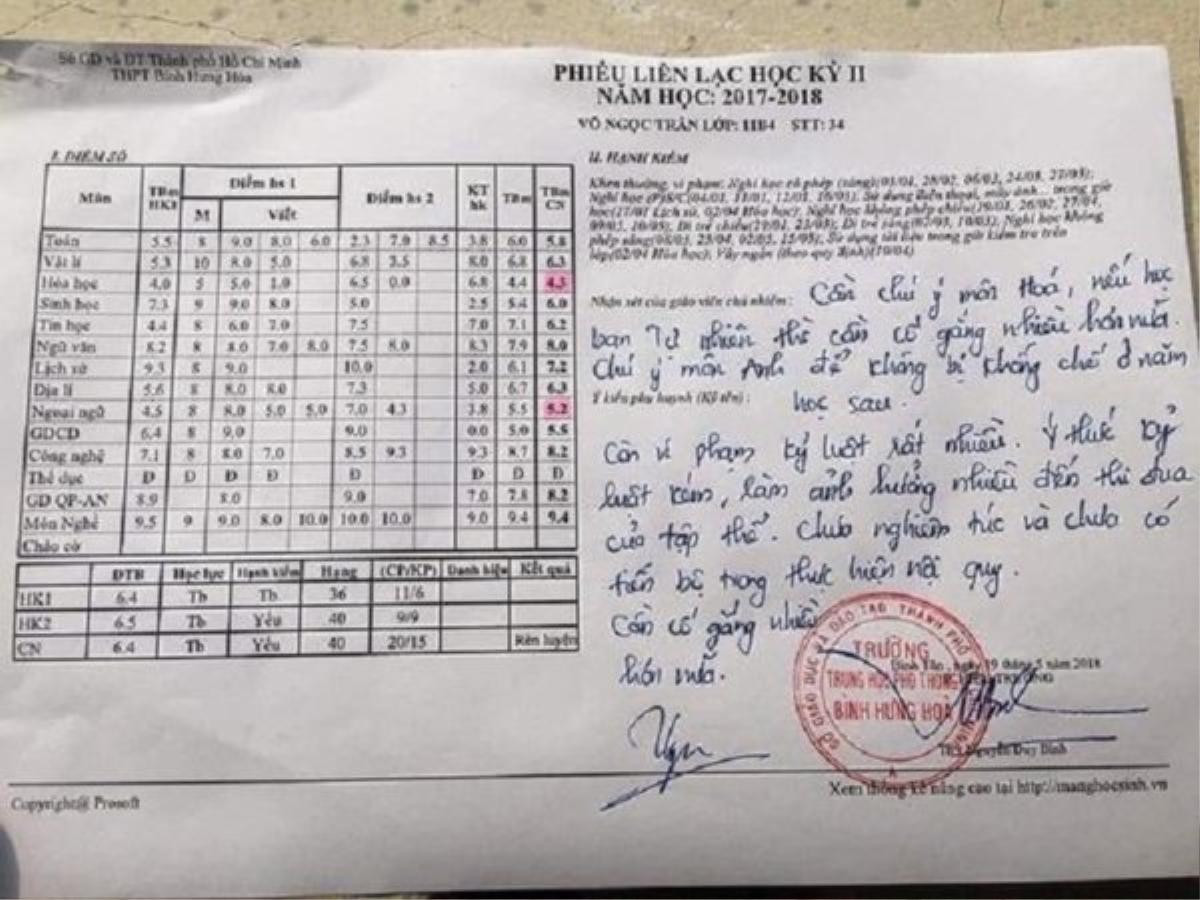 Sở GD và ĐT Thành phố Hồ Chí Minh
THPT Bình Hưng Hòa
PHIẾU LIÊN LẠC HỌC KỲ II
NĂM HỌC: 2017-2018
VÕ NGỌC TRÂN LỚP: 11B4 STT: 34
I. ĐIỂM SỐ
Môn TBm HK1 Điểm hs 1 Điểm hs 2 KT hk TBm TBm CN
M Viết
Toán 5.5 8 9.0 8.0 6.0 2.3 7.0 8.5 3.8 6.0 5.8
Vật lí 5.3 10 8.0 5.0 6.8 3.5 8.0 6.8 6.3
Hóa học 4.0 5 5.0 1.0 6.5 0.0 6.8 4.4 4.3
Sinh học 7.3 9 9.0 8.0 5.0 2.5 5.4 6.0
Tin học 4.4 8 6.0 7.0 7.5 7.0 7.1 6.2
Ngữ văn 8.2 8 8.0 7.0 8.0 7.5 8.0 8.3 7.9 8.0
Lịch sử 9.3 8 9.0 10.0 2.0 6.1 7.2
Địa lí 5.6 8 8.0 8.0 7.3 5.0 6.7 6.3
Ngoại ngữ 4.5 8 8.0 5.0 5.0 7.0 4.3 3.8 5.5 5.2
GDCD 6.4 8 9.0 9.0 0.0 5.0 5.5
Công nghệ 7.1 8 8.0 7.0 8.5 9.3 9.3 8.7 8.2
Thể dục Đ Đ Đ Đ Đ Đ Đ Đ
GD QP-AN 8.9 8.0 9.0 7.0 7.8 8.2
Môn Nghề 9.5 9 9.0 8.0 10.0 10.0 10.0 9.0 9.4 9.4
Chào cờ
ĐTB Học lực Hạnh kiểm Hạng (CP/KP) Danh hiệu Kết quả
HK1 6.4 Tb Tb 36 11/6
HK2 6.5 Tb Yếu 40 9/9
CN 6.4 Tb Yếu 40 20/15 Rèn luyện
II. HẠNH KIỂM
Khen thưởng, vi phạm: Nghỉ học có phép (sáng)
Nghỉ học Sử dụng điện thoại, máy ảnh... trong giờ
học(27/01 Lịch sử, 02/04 Hóa học); Nghỉ học không phép chiều
Đi trễ chiều Đi trễ sáng Nghỉ học không
phép sáng Sử dụng tài liệu trong giờ kiểm tra trên
lớp(02/04 Hóa học); (theo quy định)(10/04)
Nhận xét của giáo viên chủ nhiệm: Cần chú ý môn Hoá, nếu học
ban Tự nhiên thì cần cố gắng nhiều hơn nữa.
Chú ý môn Anh để không bị khống chế ở năm
học sau.
Ý kiến phụ huynh (Ký tên) :
Còn vi phạm kỷ luật rất nhiều. Ý thức kỷ
luật kém, làm ảnh hưởng nhiều đến thi đua
của tập thể. Chưa nghiêm túc và chưa có
tiến bộ trong thực hiện nội quy.
Cần cố gắng nhiều
hơn nữa.
Bình Tân, ngày 19 tháng 5 năm 2018
SỞ GIÁO DỤC VÀ ĐÀO TẠO THÀNH PHỐ
TRƯỜNG
TRUNG HỌC PHỔ THÔNG
BÌNH HƯNG HOÀ
Nguyễn Duy Bình
Copyright@ Prosoft
Xem thống kê nâng cao tại http://manghocsinh.vn